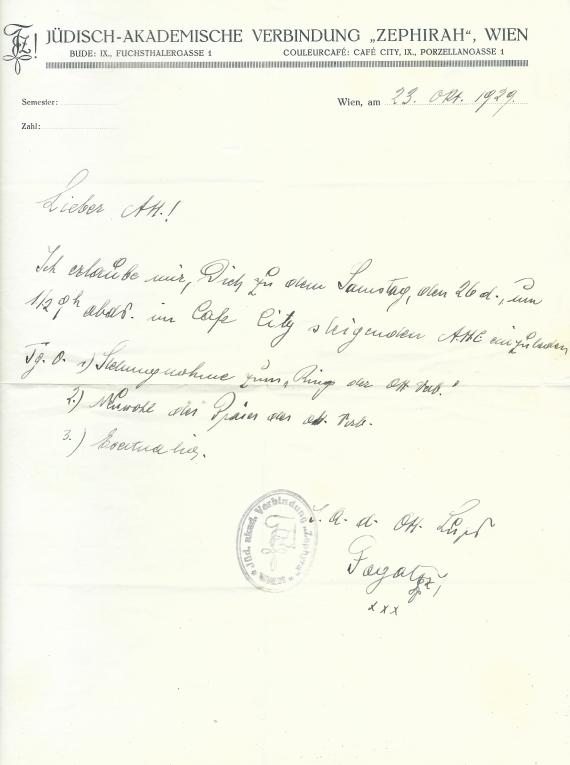 JÜDISCH-AKADEMISCHE VERBINDUNG „ZEPHIRAH“, WIEN
BUDE: IX., FUCHSTHALERGASSE 1 COULEURCAFÉ: CAFÉ CITY, IX., PORZELLANGASSE 1
Semester:
Wien, am 23. Okt. 1929.
Zahl:
Lieber AH.!
Ich erlaube mir, Dich zu dem Samstag, den 26 d., um
1/2 9h abds. im Cafe City steigenden AHC einzuladen
Tg. O. 1) Stellungnahme zum „Ring der AH Verb.“
2.) Neuwahl des Präses der AH. Verb.
3.) Eventualia.
Jüd. akad. Verbindung „Zephyra“
WIEN
I. A. d.
xxx